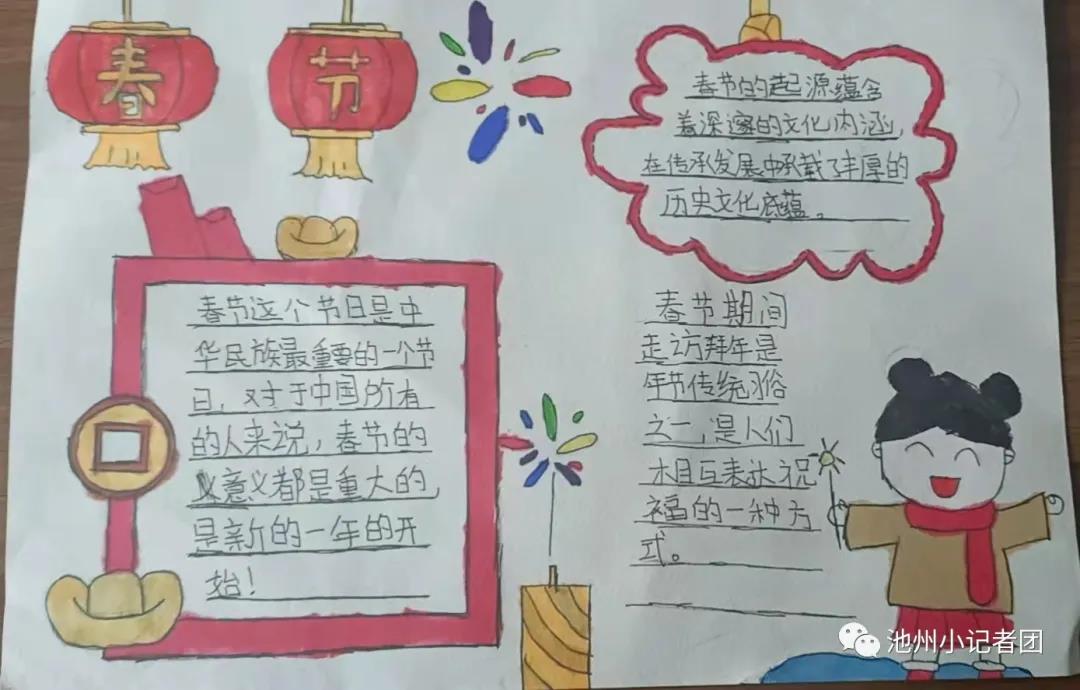 春节
春节的起源蕴含
着深邃的文化内涵,
在传承发展中承载了丰厚的
历史文化底蕴。
春节这个节日是中
华民族最重要的一个节
日,对于中国所有
的人来说,春节的
意义都是重大的,
是新的一年的开
始!
春节期间
走访拜年是
年节传统习俗
之一,是人们
相互表达祝
福的一种方
式。
池州小记者团